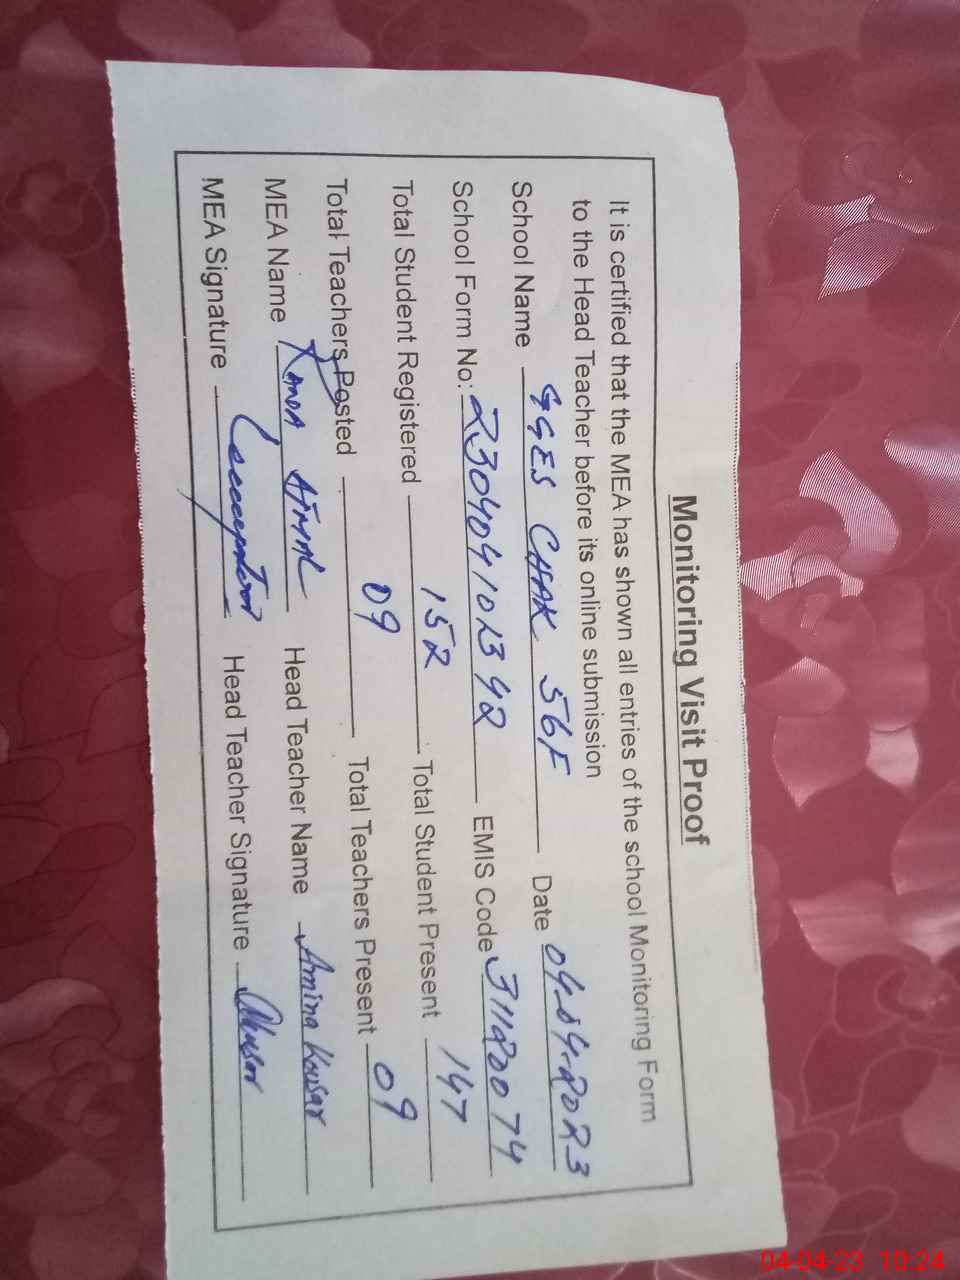 Monitoring Visit Proof
It is certified that the MEA has shown all entries of the school Monitoring Form
to the Head Teacher before its online submission
School Name GGES CHAK 56F Date 04-04-2023
School Form No: 230404102342 EMIS Code 31120074
Total Student Registered 152 Total Student Present 147
Total Teachers Posted 09 Total Teachers Present 09
MEA Name AJMAL Head Teacher Name Amina Kousar
MEA Signature Head Teacher Signature
04-04-23 10:24